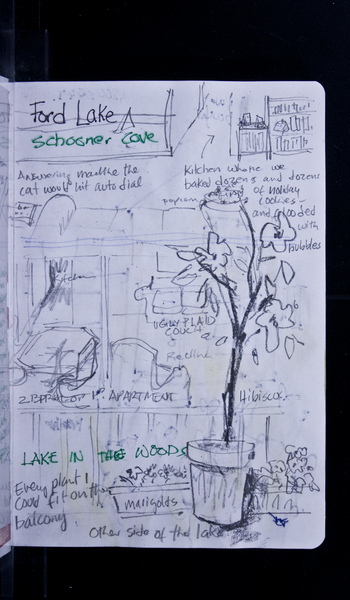 Ford Lake
Schooner Cove
Answering machine the
cat would hit auto dial
Kitchen where we
baked dozens and dozens
of holiday
cookies
and flooded
with
bubbles
Kitchen
UGLY PLAID
COUCH
Recliner
APARTMENT
Hibiscus
LAKE IN THE WOODS
Every plant I
could fit on the
balcony
marigolds
Other side of the lake